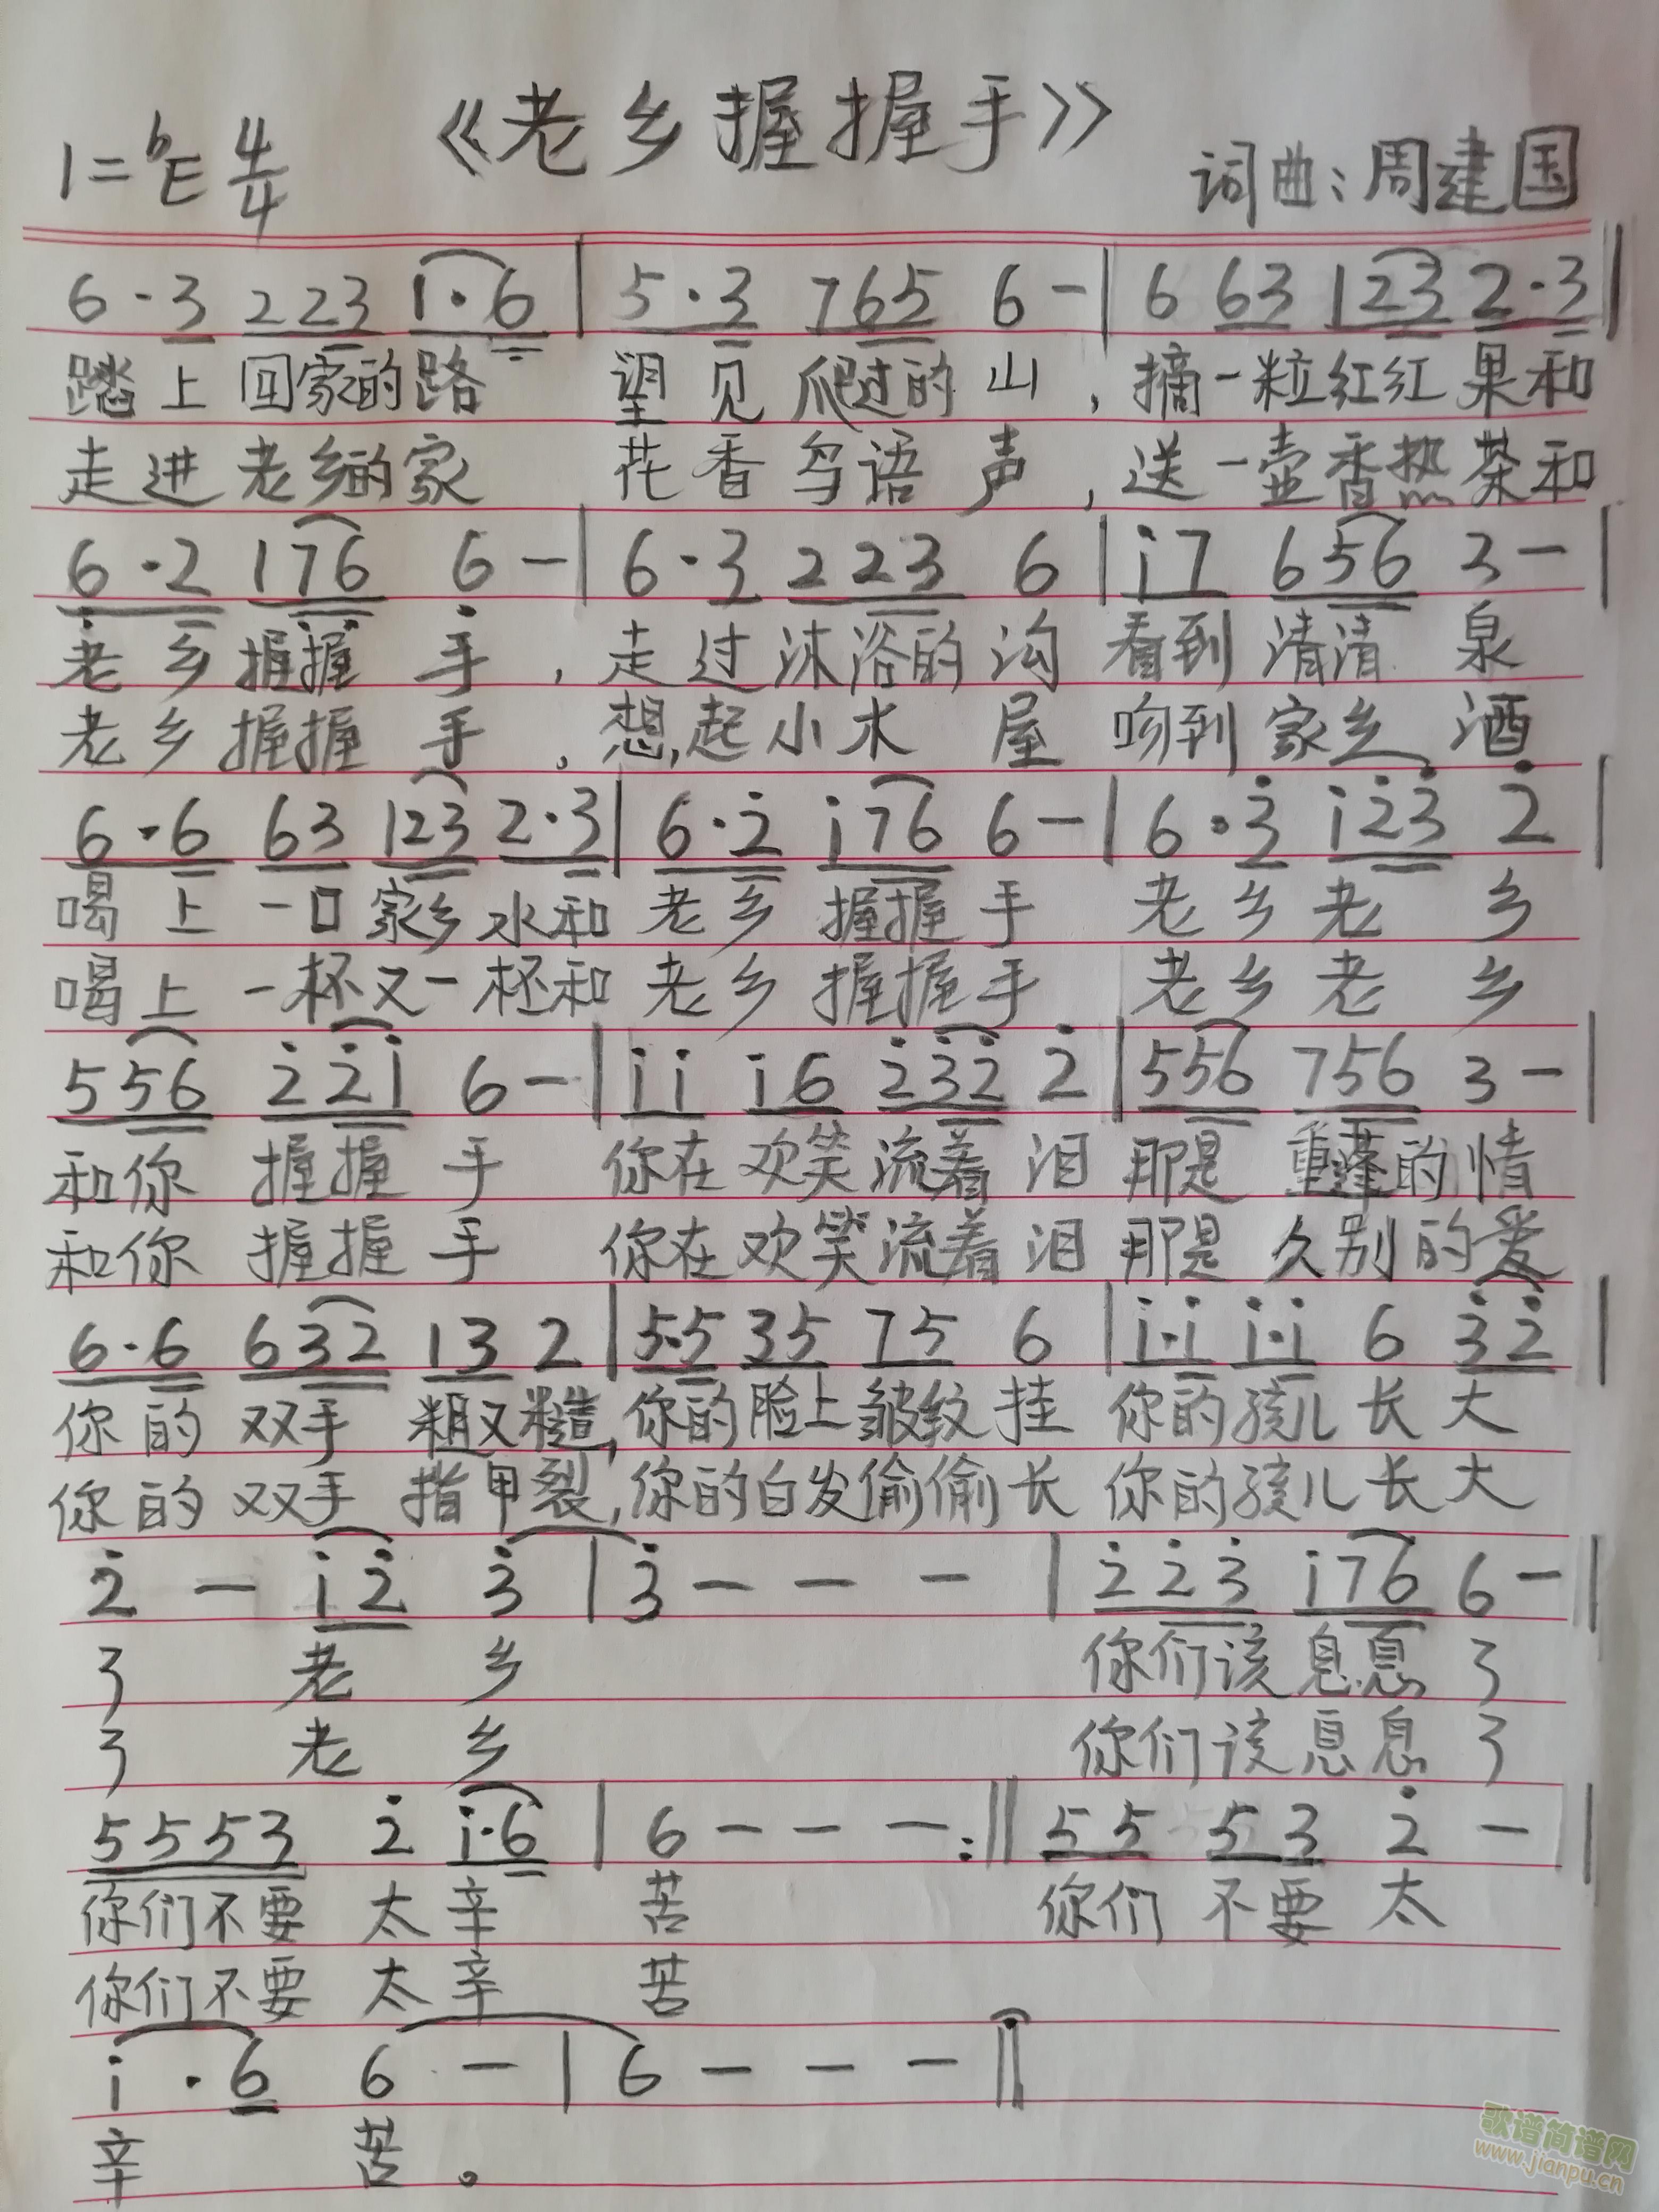 《老乡握握手》
1=ᵇE 4/4
词曲:周建国
6·3 223 i·6 | 5·3 765 6 - | 6 63 123 2·3 |
踏上回家的路 望见爬过的山,摘一粒红红果和
走进老乡的家 花香鸟语声,送一壶香热茶和
6·2 176 6 - | 6·3 223 6 | i7 656 3 - |
老乡握握手,走过沐浴的沟 看到清清泉
老乡握握手。想起小木屋 吻到家乡酒
6·6 63 123 2·3 | 6·2̇ i76 6 - | 6·3̇ i2̇3̇ 2̇ |
喝上一口家乡水和 老乡握握手 老乡老乡
喝上一杯又一杯和 老乡握握手 老乡老乡
556 2̇2̇i 6 - | ii i6 2̇3̇2̇ 2̇ | 556 756 3 - |
和你握握手 你在欢笑流着泪 那是重蓬的情
和你握握手 你在欢笑流着泪 那是久别的爱
6·6 632 13 2 | 5·5 35 75 6 | i·i i·i 6 3̇2̇ |
你的双手粗又糙,你的脸上皱纹挂 你的孩儿长大
你的双手指甲裂,你的白发偷偷长 你的孩儿长大
2̇ - i2̇ 3̇ | 3̇ - - - | 2̇2̇3̇ i76 6 - |
了 老乡 你们该息息了
了 老乡 你们该息息了
5553 2̇ i·6 | 6 - - - :‖ 55 53 2̇ - |
你们不要太辛苦 你们不要太
你们不要太辛苦
i·6 6 - | 6 - - - ‖
辛苦。
歌谱简谱网
www.jianpu.cn